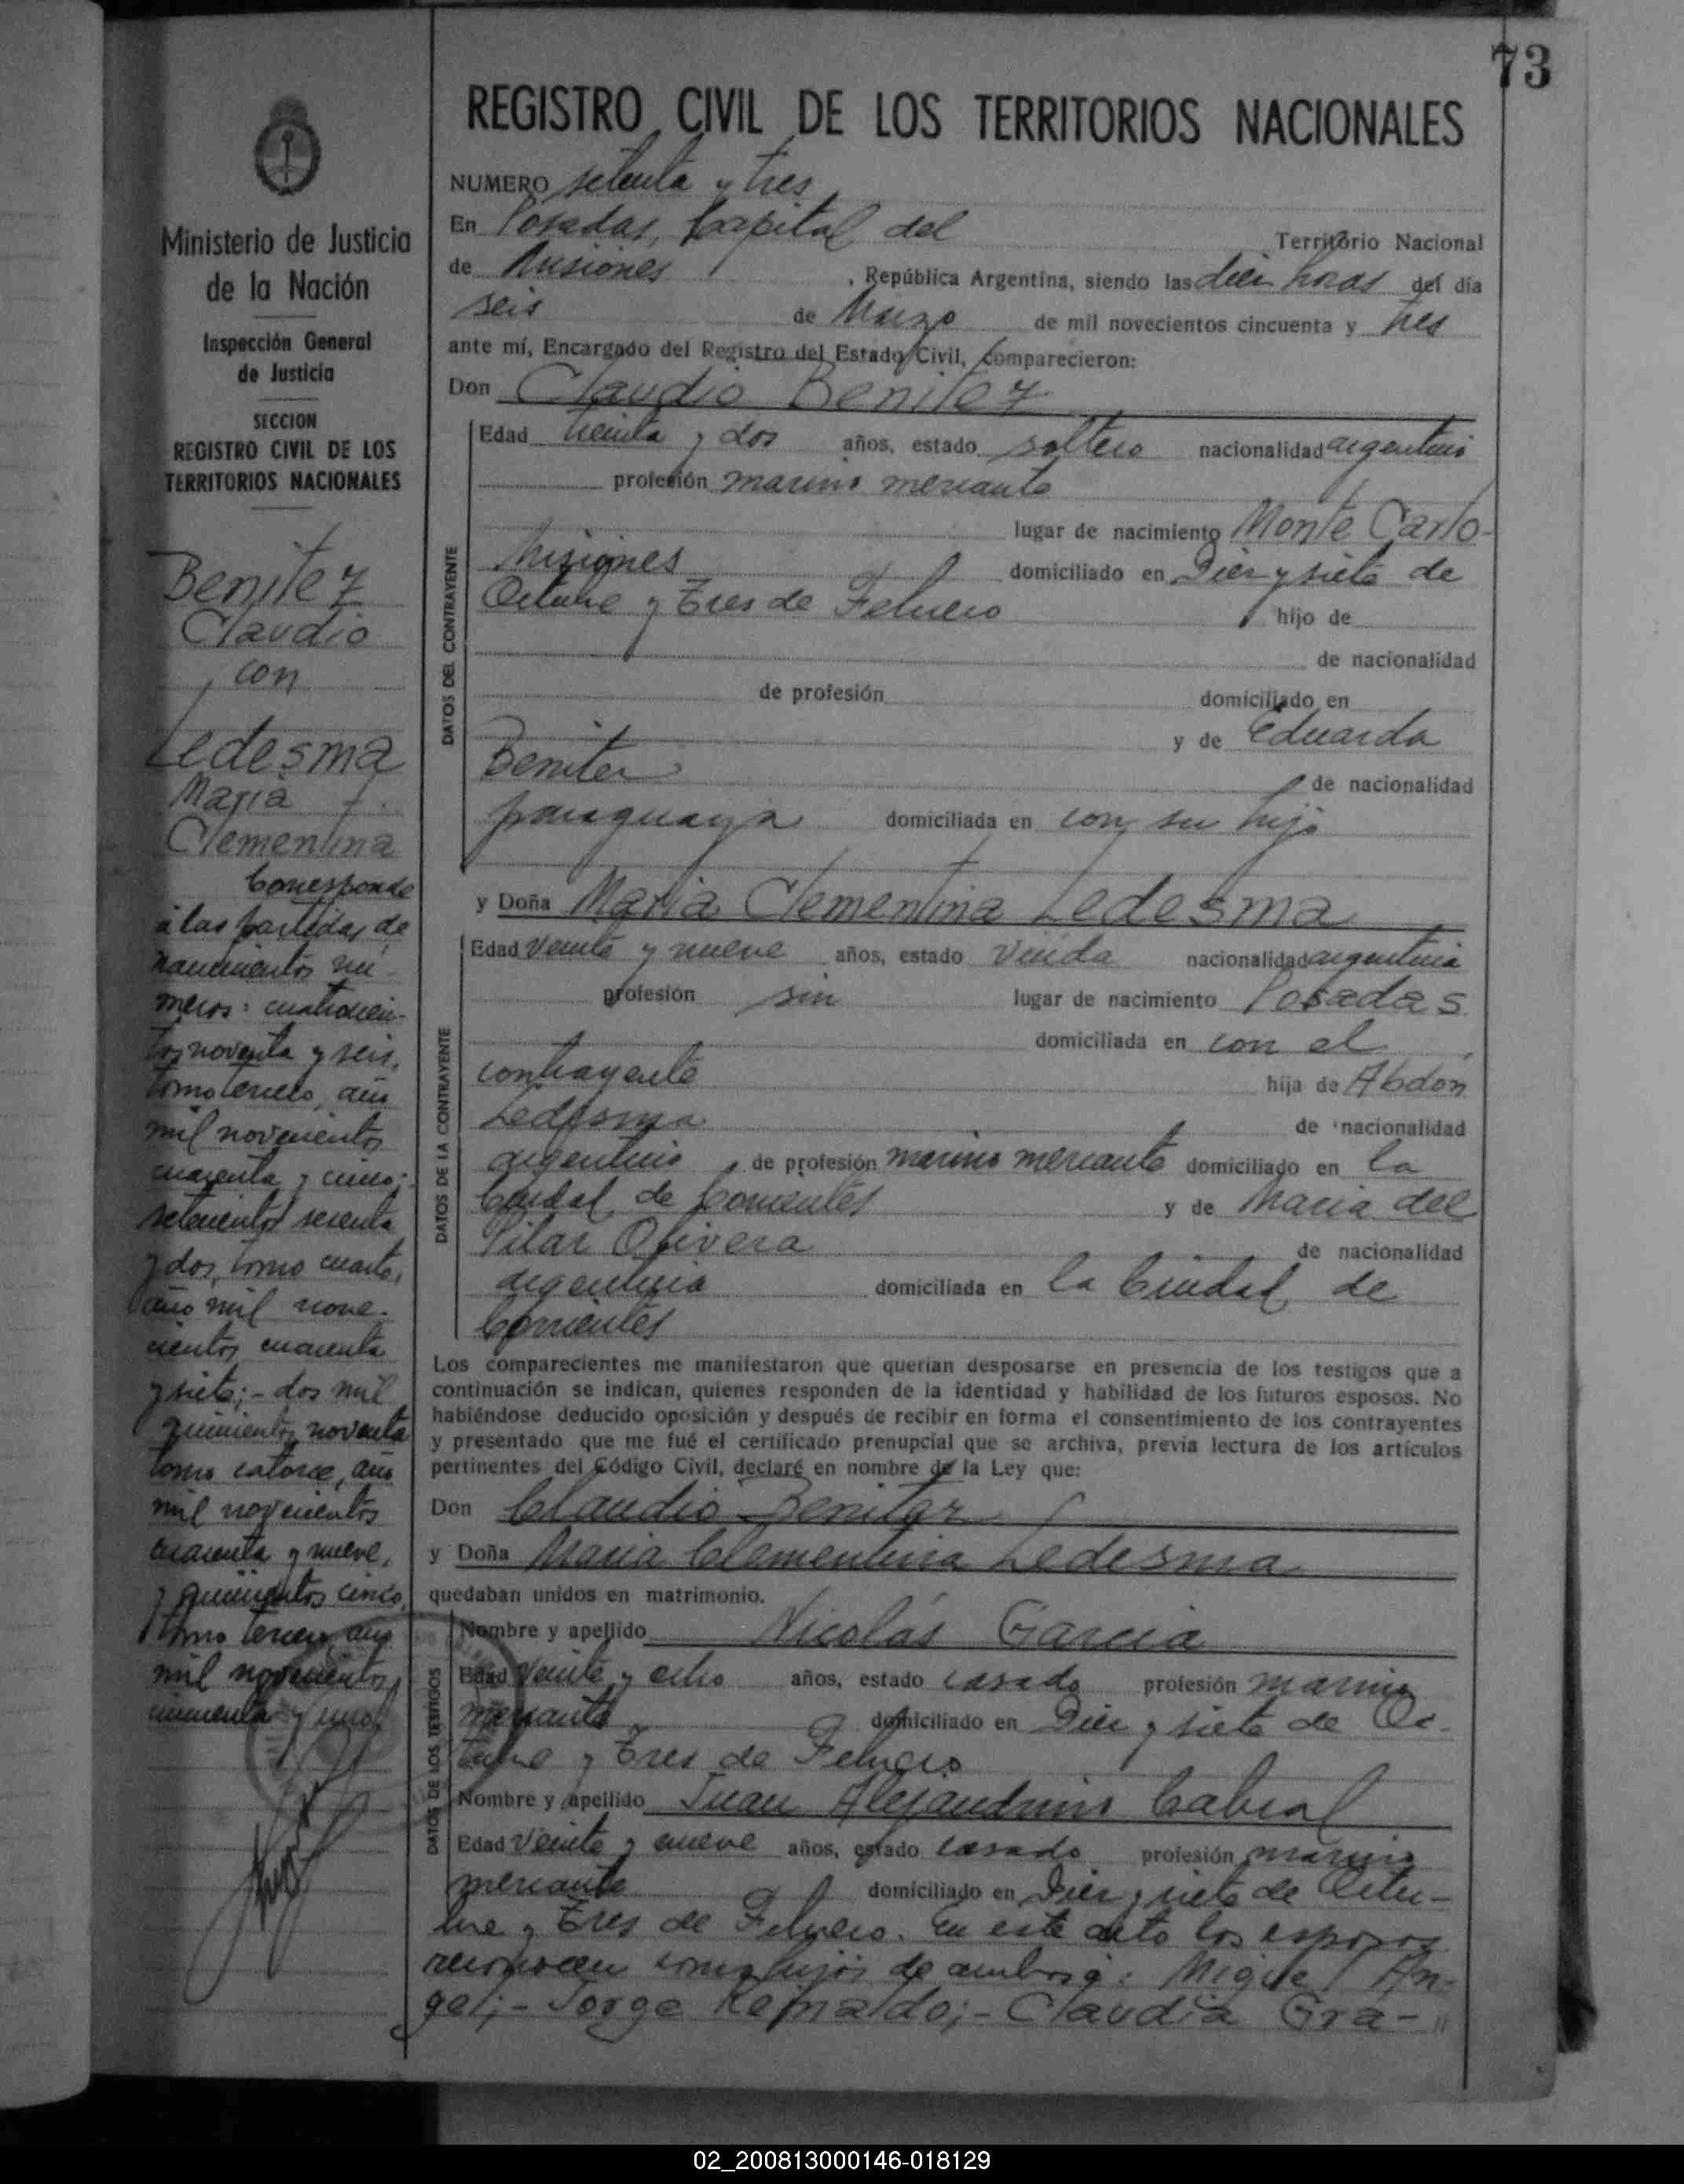 73
REGISTRO CIVIL DE LOS TERRITORIOS NACIONALES
NUMERO setenta y tres
En Posadas, Capital del Territorio Nacional
de Misiones, República Argentina, siendo las diez horas del día
seis de Marzo de mil novecientos cincuenta y tres
ante mí, Encargado del Registro del Estado Civil, comparecieron:
Don Claudio Benitez
DATOS DEL CONTRAYENTE
Edad treinta y dos años, estado soltero nacionalidad argentino
profesión marino mercante
lugar de nacimiento Monte Carlo-
Misiones domiciliado en Diez y siete de
Octubre y Tres de Febrero hijo de
de nacionalidad
de profesión domiciliado en
y de Eduarda
Benitez de nacionalidad
paraguaya domiciliada en con su hijo
y Doña Maria Clementina Ledesma
DATOS DE LA CONTRAYENTE
Edad veinte y nueve años, estado viuda nacionalidad argentina
profesión sin lugar de nacimiento Posadas
domiciliada en con el
contrayente hija de Abdon
Ledesma de nacionalidad
argentino, de profesión marino mercante domiciliado en la
Ciudad de Corrientes y de Maria del
Pilar Olivera de nacionalidad
argentina domiciliada en la Ciudad de
Corrientes
Los comparecientes me manifestaron que querían desposarse en presencia de los testigos que a
continuación se indican, quienes responden de la identidad y habilidad de los futuros esposos. No
habiéndose deducido oposición y después de recibir en forma el consentimiento de los contrayentes
y presentado que me fué el certificado prenupcial que se archiva, previa lectura de los artículos
pertinentes del Código Civil, declaré en nombre de la Ley que:
Don Claudio Benitez
y Doña Maria Clementina Ledesma
quedaban unidos en matrimonio.
DATOS DE LOS TESTIGOS
Nombre y apellido Nicolás Garcia
Edad veinte y ocho años, estado casado profesión marino
mercante domiciliado en Diez y siete de Oc-
tubre y Tres de Febrero
Nombre y apellido Juan Alejandrino Cabral
Edad veinte y nueve años, estado casado profesión marino
mercante domiciliado en Diez y siete de Octu-
bre y Tres de Febrero. En este acto los esposos
reconocen como hijos de ambos a: Miguel An-
gel;- Jorge Reinaldo;- Claudia Gra-"
Ministerio de Justicia
de la Nación
Inspección General
de Justicia
SECCION
REGISTRO CIVIL DE LOS
TERRITORIOS NACIONALES
Benitez
Claudio
con
Ledesma
Maria
Clementina
Corresponde
a las partidas de
nacimientos nu-
meros: cuatrocien-
tos noventa y seis,
tomo tercero, año
mil novecientos
cuarenta y cinco;-
setecientos sesenta
y dos, tomo cuarto,
año mil nove-
cientos cuarenta
y siete;- dos mil
quinientos noventa
tomo catorce, año
mil novecientos
cuarenta y nueve,
y quinientos cinco,
tomo tercero, año
mil novecientos
cincuenta y uno.
02_200813000146-018129